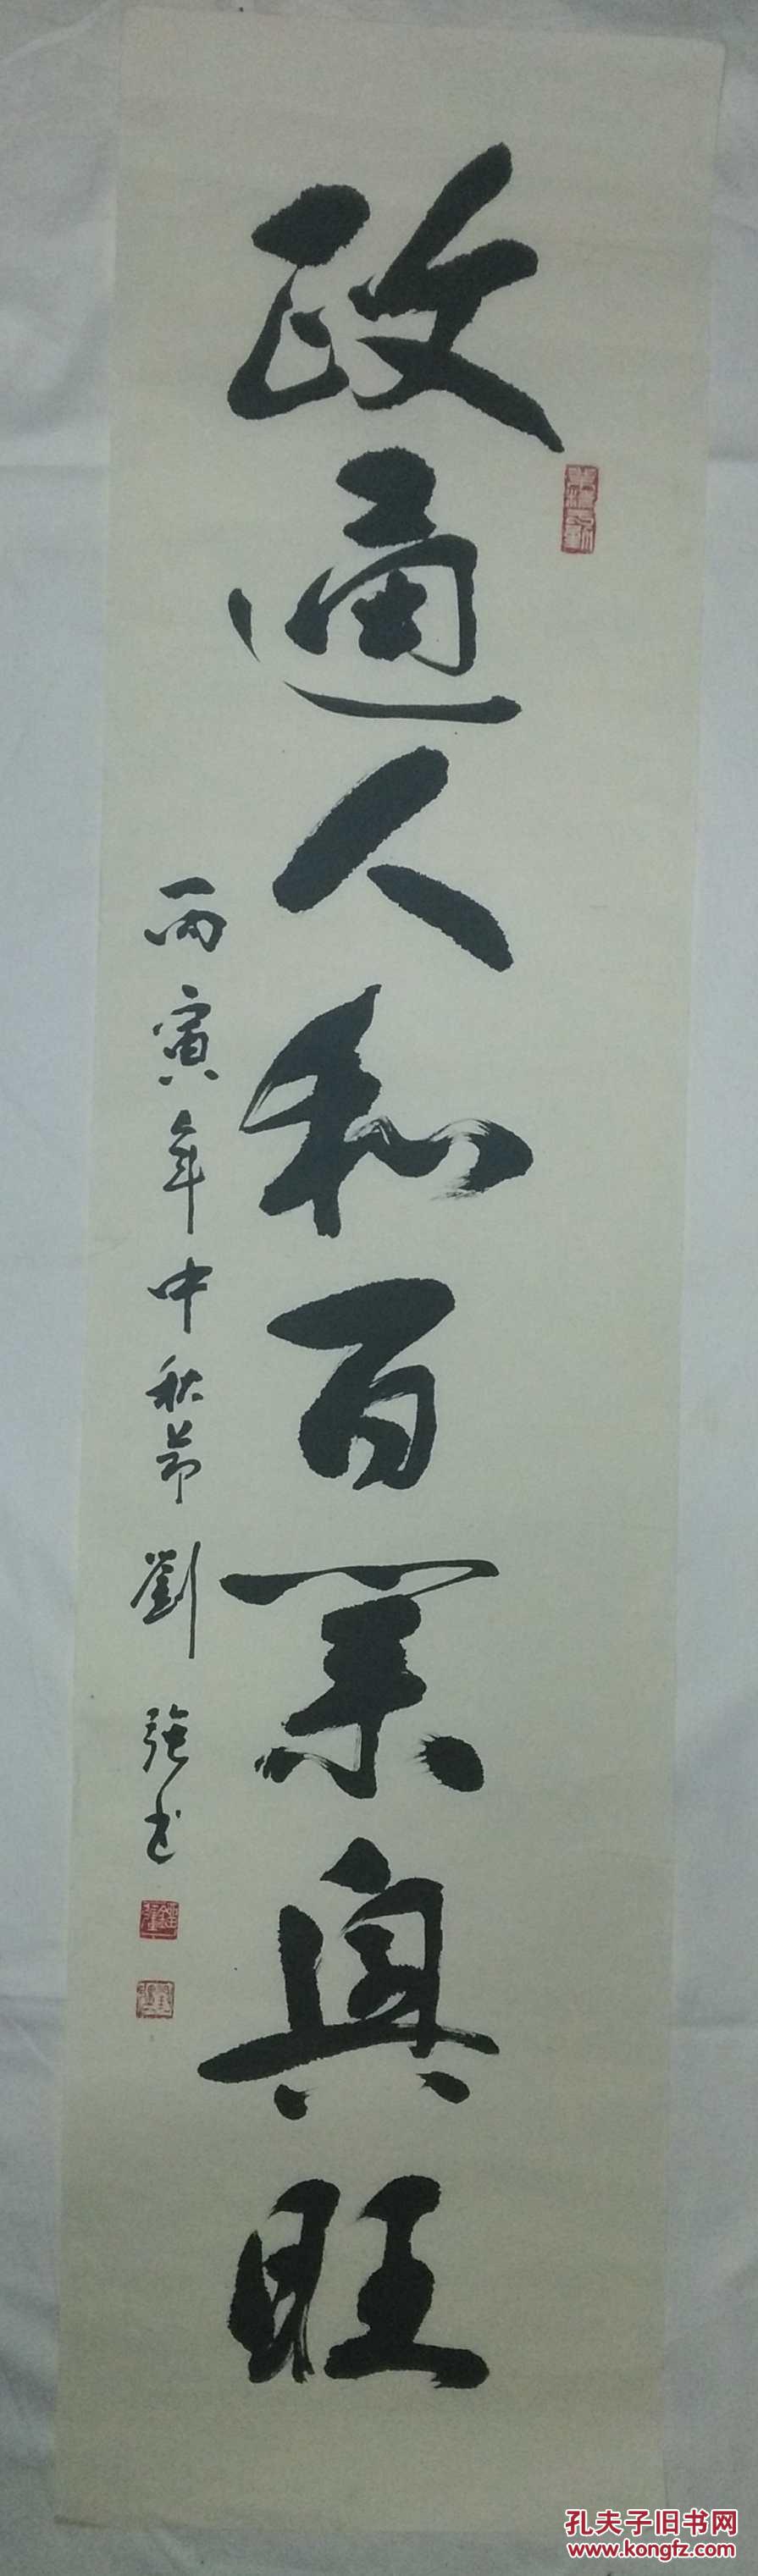 政通人和百業興旺
丙寅年中秋节劉强书
孔夫子旧书网
www.kongfz.com